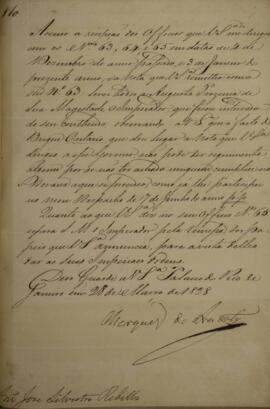 Accuso a recepção dos Officios que V. S. me dirigio
com os Nos 63, 64 e 65 em datas de 4 de
Dezembro do anno passado, e 3 de Janeiro do
presente anno, e a Nota que V. S. remetteo com o
seu No 63 levei tudo a Augusta Presença de
Sua Magestade o Imperador que ficou inteirado
de seu contheudo, observando a V. S. que a falta do
Brigue Caboclo, que deu lugar a Nota que
dirigio a esse Governo, não pode ter seguimento
algum por se não ter achado
aqui se procedeo, como ja lhe participei
no meu Despacho de de Junho do anno pp.
Quanto ao que V. S. diz no seu Officio No 65
espera S. M. o Imperador pela remessa dos pa-
peis que V. S. annuncia, para a vista delles
dar as Suas Imperiaes Ordens.
Deos Guarde a V. S. Palacio do Rio de
Janeiro em 28 de Março de 1828
Marquez do Aracaty
Snr. Jose Silvestre Rebello